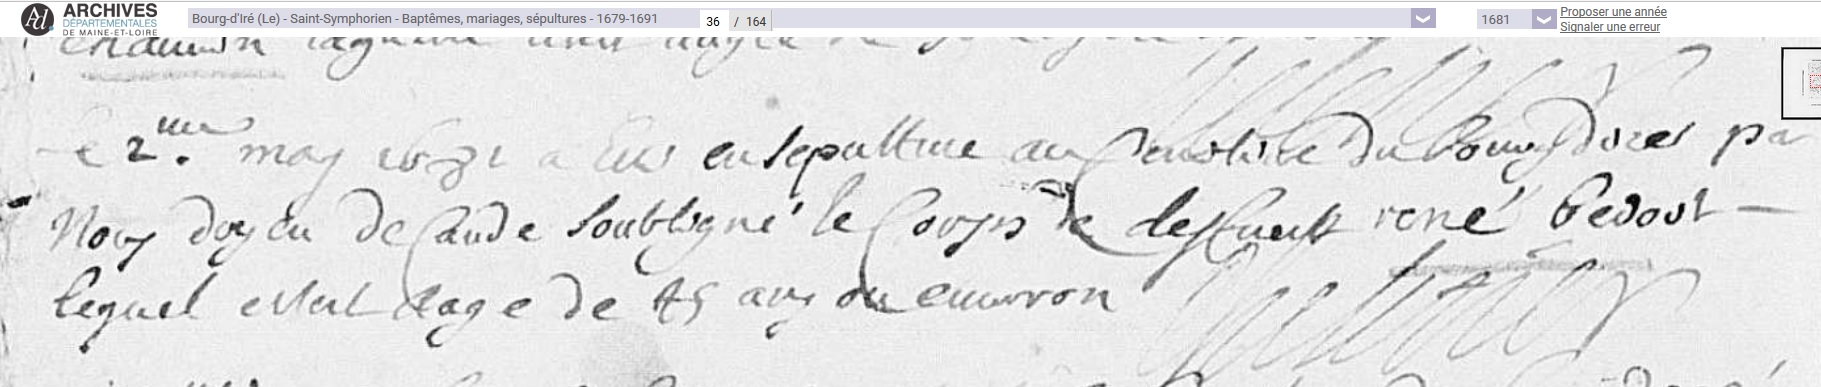 ARCHIVES
DÉPARTEMENTALES
DE MAINE-ET-LOIRE
Bourg-d'Iré (Le) - Saint-Symphorien - Baptêmes, mariages, sépultures - 1679-1691
36 / 164
1681
Proposer une année
Signaler une erreur
Le 2me. may 1681 a este ensepulture au cimetiere du bourg diré par
Nous doyen de Candé soubsigné le corps de deffunct rené bedout
lequel estoit aage de 45 ans ou environ